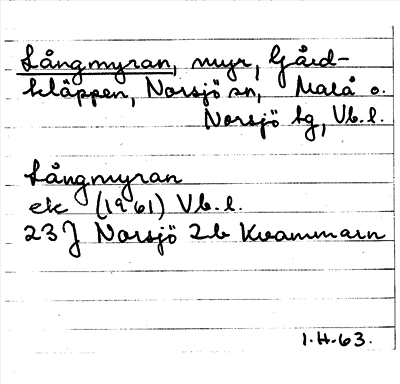 Långmyran, myr, Gård-
kläppen, Norsjö sn, Malå o.
Norsjö tg, Vb. l.
Långmyran
ek (1961) Vb. l.
23 J Norsjö 2b Kvammarn
1.H.63.